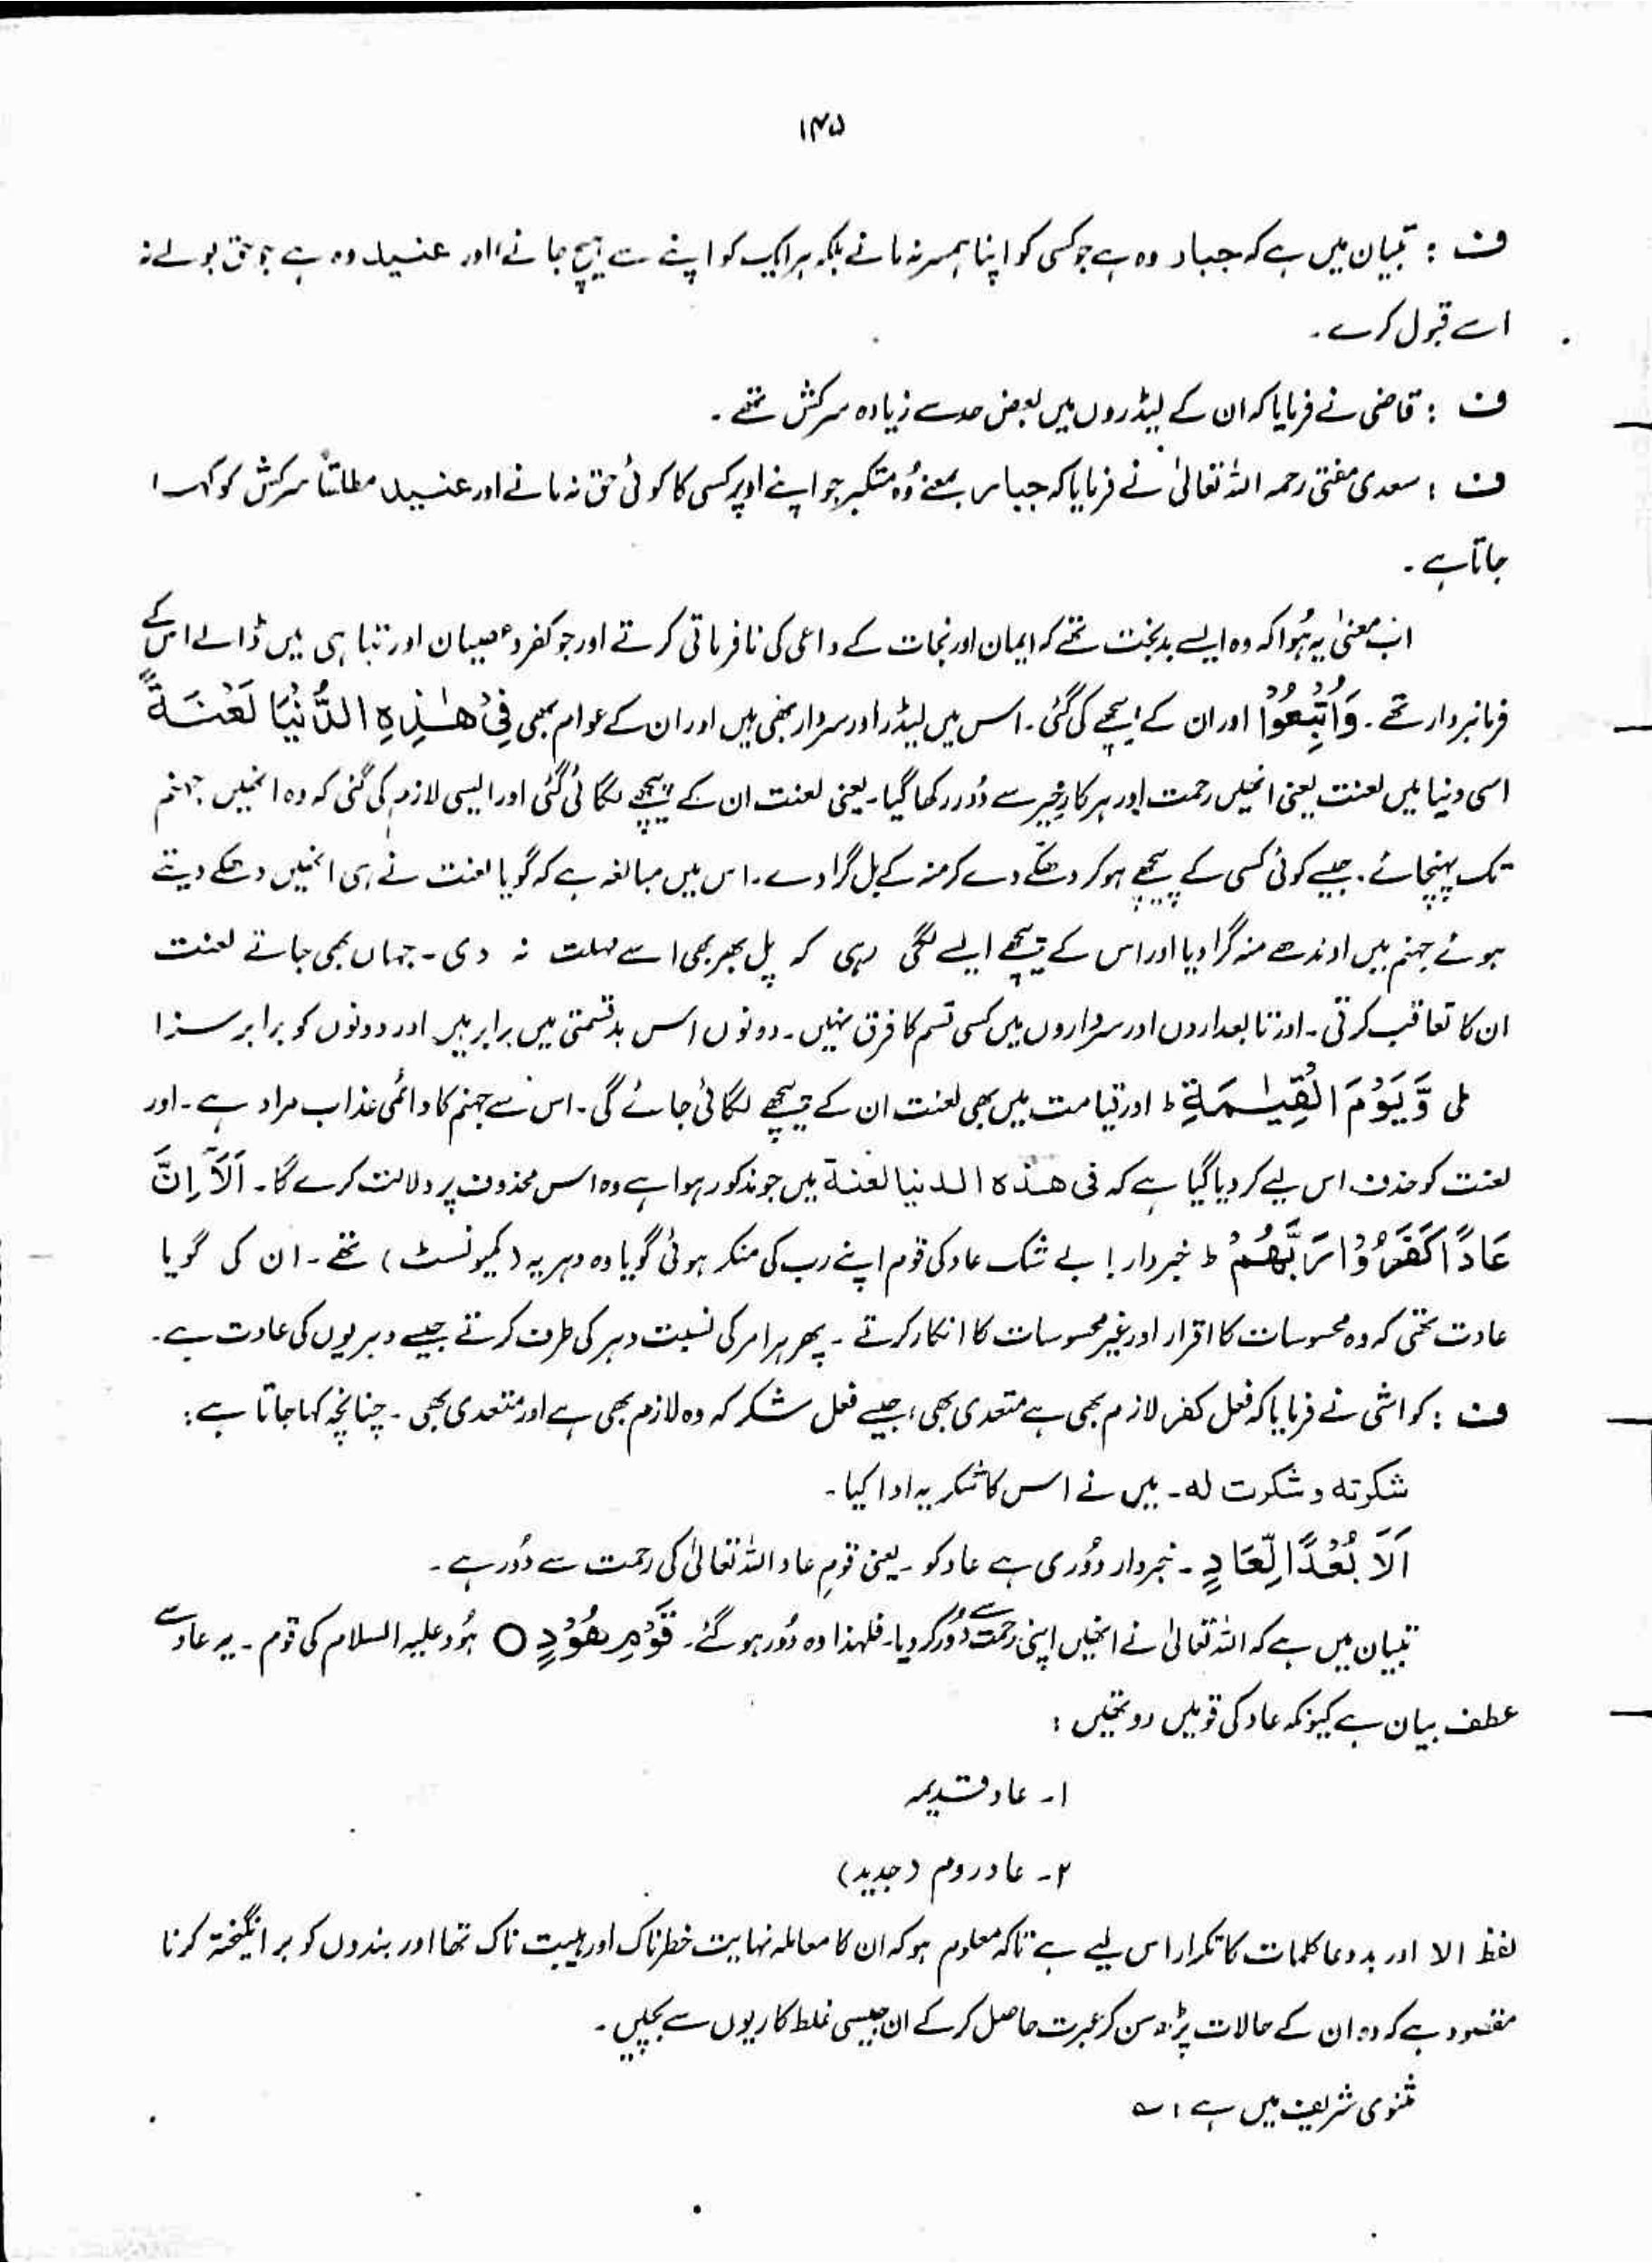 ۱۴۵
ف : تبیان میں ہے کہ جبار وہ ہے جو کسی کو اپنا ہمسر نہ مانے بلکہ ہر ایک کو اپنے سے ہیچ جانے، اور عنید وہ ہے جو حق بولے نہ
اسے قبول کرے۔
ف : قاضی نے فرمایا کہ ان کے لیڈروں میں بعض حد سے زیادہ سرکش تھے۔
ف : سعدی مفتی رحمہ اللہ تعالیٰ نے فرمایا کہ جبار بمعنے وُہ متکبر جو اپنے اوپر کسی کا کوئی حق نہ مانے اور عنید مطلقاً سرکش کو کہا
جاتا ہے۔
اب معنیٰ یہ ہُوا کہ وہ ایسے بدبخت تھے کہ ایمان اور نجات کے داعی کی نافرمانی کرتے اور جو کفر و عصیان اور تباہی میں ڈالے اس کے
فرمانبردار تھے۔ وَاُتْبِعُوْا اور ان کے پیچھے کی گئی۔ اس میں لیڈر اور سردار بھی ہیں اور ان کے عوام بھی فِیْ ھٰذِہِ الدُّنْیَا لَعْنَۃً
اسی دنیا میں لعنت یعنی انھیں رحمت اور ہر کارِ خیر سے دُور رکھا گیا۔ یعنی لعنت ان کے پیچھے لگائی گئی اور ایسی لازم کی گئی کہ وہ انھیں جہنم
تک پہنچائے۔ جیسے کوئی کسی کے پیچھے ہو کر دھکّے دے کر منہ کے بل گرا دے۔ اس میں مبالغہ ہے کہ گویا لعنت نے ہی انھیں دھکے دیتے
ہوئے جہنم میں اوندھے منہ گرا دیا اور اس کے پیچھے ایسے لگی رہی کہ پل بھر بھی اسے مہلت نہ دی۔ جہاں بھی جاتے لعنت
ان کا تعاقب کرتی۔ اور تابعداروں اور سرداروں میں کسی قسم کا فرق نہیں۔ دونوں اس بدقسمتی میں برابر ہیں اور دونوں کو برابر سزا
ملی وَّیَوْمَ الْقِیٰمَۃِ ط اور قیامت میں بھی لعنت ان کے پیچھے لگائی جائے گی۔ اس سے جہنم کا دائمی عذاب مراد ہے۔ اور
لعنت کو حذف اس لیے کر دیا گیا ہے کہ فی ھذہ الدنیا لعنۃ میں جو مذکور ہوا ہے وہ اس محذوف پر دلالت کرے گا۔ اَلَآ اِنَّ
عَادًا کَفَرُوْا رَبَّھُمْ ط خبردار! بے شک عاد کی قوم اپنے رب کی منکر ہوئی گویا وہ دہریہ (کمیونسٹ) تھے۔ ان کی گویا
عادت تھی کہ وہ محسوسات کا اقرار اور غیر محسوسات کا انکار کرتے۔ پھر ہر امر کی نسبت دہر کی طرف کرتے جیسے دہریوں کی عادت ہے۔
ف : کواشی نے فرمایا کہ فعل کفر لازم بھی ہے متعدی بھی، جیسے فعل شکر کہ وہ لازم بھی ہے اور متعدی بھی۔ چنانچہ کہا جاتا ہے:
شکرتہ و شکرت لہ۔ میں نے اس کا شکریہ ادا کیا۔
اَلَا بُعْدًا لِّعَادٍ ۔ خبردار دُوری ہے عاد کو۔ یعنی قومِ عاد اللہ تعالیٰ کی رحمت سے دُور ہے۔
تبیان میں ہے کہ اللہ تعالیٰ نے انھیں اپنی رحمت سے دُور کر دیا۔ فلہذا وہ دُور ہو گئے۔ قَوْمِ ھُوْدٍ ○ ہُود علیہ السلام کی قوم۔ یہ عاد سے
عطف بیان ہے کیونکہ عاد کی قومیں دو تھیں :
۱۔ عاد قدیمہ
۲۔ عاد دوم (جدید)
لفظ الا اور بددعا کلمات کا تکرار اس لیے ہے تاکہ معلوم ہو کہ ان کا معاملہ نہایت خطرناک اور ہیبت ناک تھا اور بندوں کو برانگیختہ کرنا
مقصود ہے کہ وہ ان کے حالات پڑھ سن کر عبرت حاصل کر کے ان جیسی غلط کاریوں سے بچیں۔
مثنوی شریف میں ہے : ؎